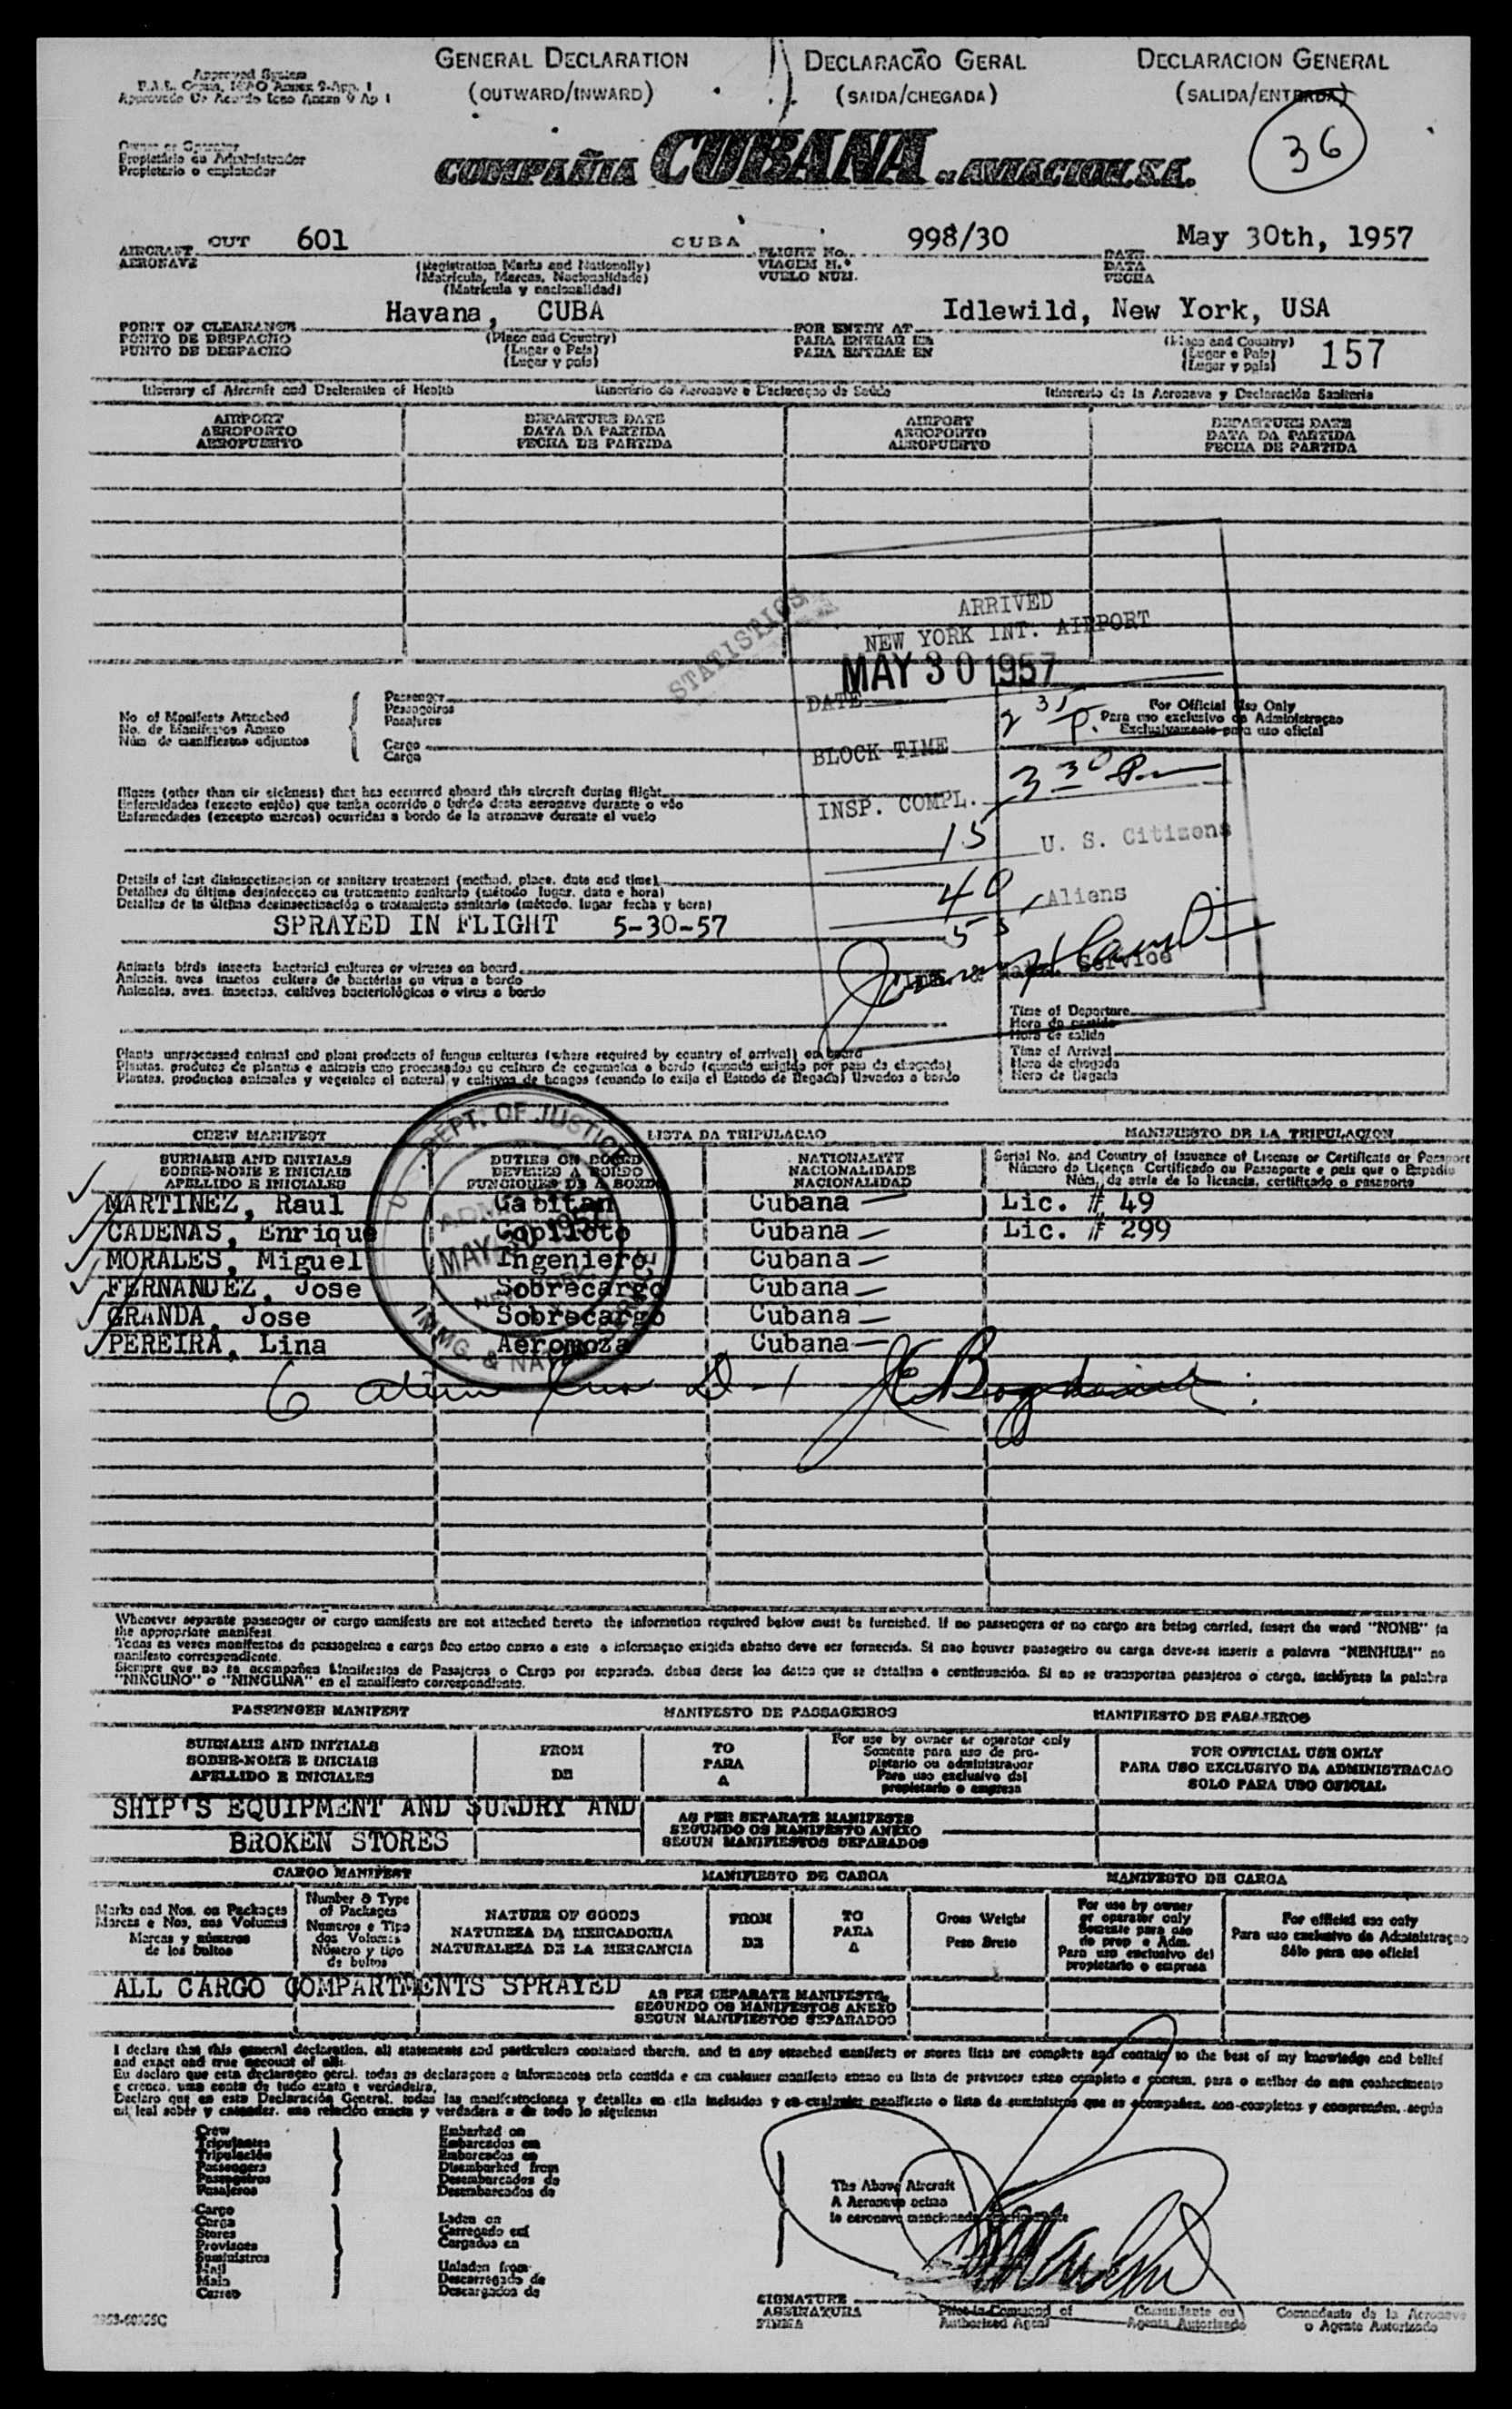 GENERAL DECLARATION
(OUTWARD/INWARD)
DECLARACÃO GERAL
(SAIDA/CHEGADA)
DECLARACION GENERAL
(SALIDA/ENTRADA)
Approved System
Owner or Operator
Propietário ou Administrador
Propietario o explotador
COMPAÑIA CUBANA DE AVIACION, S.A.
36
AIRCRAFT CUT 601 CUBA
AERONAVE
(Registration Marks and Nationally)
(Matricula, Marcas, Nacionalidade)
(Matricula y nacionalidad)
FLIGHT No. 998/30
VIAGEM N.º
VUELO NUM.
DATE May 30th, 1957
DATA
FECHA
POINT OF CLEARANCE Havana, CUBA
PONTO DE DESPACHO
PUNTO DE DESPACHO
(Place and Country)
(Lugar o Pais)
(Lugar y pais)
FOR ENTRY AT Idlewild, New York, USA
PARA ENTRAR EM
PARA ENTRAR EN
(Place and Country)
(Lugar e Pais)
(Lugar y pais)
157
Itinerary of Aircraft and Declaration of Health
Itinerário da Aeronave e Declaraçao de Saúde
Itinerario de la Aeronave y Declaración Sanitaria
AIRPORT
AEROPORTO
AEROPUERTO
DEPARTURE DATE
DATA DA PARTIDA
FECHA DE PARTIDA
AIRPORT
AEROPORTO
AEROPUERTO
DEPARTURE DATE
DATA DA PARTIDA
FECHA DE PARTIDA
STATISTICS
ARRIVED
NEW YORK INT. AIRPORT
MAY 30 1957
DATE
BLOCK TIME 2 35 P.
INSP. COMPL. 3 30 P
15 U. S. Citizens
40 Aliens
55
Service
No of Manifests Attached
No. de Manifestos Anexo
Núm de manifiestos adjuntos
Passenger
Passageiros
Pasajeros
Cargo
Carga
For Official Use Only
Para uso exclusivo da Administraçao
Exclusivamente para uso oficial
Illness (other than air sickness) that has occurred aboard this aircraft during flight
Enfermidades (exceto enjôo) que tenha ocorrido a bordo desta aeronave durante o vôo
Enfermedades (excepto mareos) ocurridas a bordo de la aeronave durante el vuelo
Details of last disinsectization or sanitary treatment (method, place, date and time)
Detalhes da última desinfeccao ou tratamento sanitario (método lugar, data e hora)
Detalles de la última desinsectización o tratamiento sanitario (método, lugar fecha y hora)
SPRAYED IN FLIGHT 5-30-57
Animals birds insects bacterial cultures or viruses on board
Animais, aves insetos cultura de bactérias ou virus a bordo
Animales, aves, insectos, cultivos bacteriológicos o virus a bordo
Time of Departure
Hora da partida
Hora de salida
Time of Arrival
Hora de chegada
Hora de llegada
Plants unprocessed animal and plant products of fungus cultures (where required by country of arrival) on board
Plantas, produtos de plantas e animais nao processados ou cultura de cogumelos a bordo (quando exigido por pais de chegada)
Plantas, productos animales y vegetales al natural y cultivos de hongos (cuando lo exija el Estado de llegada) llevados a bordo
CREW MANIFEST
LISTA DA TRIPULACAO
MANIFIESTO DE LA TRIPULACION
SURNAME AND INITIALS
SOBRE-NOME E INICIAIS
APELLIDO E INICIALES
DUTIES ON BOARD
DEVERES A BORDO
FUNCIONES DE A BORDO
NATIONALITY
NACIONALIDADE
NACIONALIDAD
Serial No. and Country of Issuance of License or Certificate or Passport
Número da Licença Certificado ou Passaporte e pais que o Expediu
Núm. de serie de la licencia, certificado o pasaporte
MARTINEZ, Raul Capitan Cubana Lic. # 49
CADENAS, Enrique Copiloto Cubana Lic. # 299
MORALES, Miguel Ingeniero Cubana
FERNANDEZ, Jose Sobrecargo Cubana
GRANDA, Jose Sobrecargo Cubana
PEREIRA, Lina Aeromoza Cubana
U. S. DEPT. OF JUSTICE
ADMITTED
MAY 30 1957
NEW YORK
IMMG. & NATZ. SERVICE
6 alien crew D-1
Whenever separate passenger or cargo manifests are not attached hereto the information required below must be furnished. If no passengers or no cargo are being carried, insert the word "NONE" in
the appropriate manifest.
Todas as vezes manifestos de passageiros e carga nao estao anexo a este a informaçao exigida abaixo deve ser fornecida. Si nao houver passageiro ou carga deve-se inserir a palavra "NENHUM" no
manifesto correspondiente.
Siempre que no se acompañen Manifiestos de Pasajeros o Cargo por separado, deben darse los datos que se detallan a continuación. Si no se transportan pasajeros o cargo, inclúyase la palabra
"NINGUNO" o "NINGUNA" en el manifiesto correspondiente.
PASSENGER MANIFEST
MANIFESTO DE PASSAGEIROS
MANIFIESTO DE PASAJEROS
SURNAME AND INITIALS
SOBRE-NOME E INICIAIS
APELLIDO E INICIALES
FROM
DE
TO
PARA
A
For use by owner or operator only
Somente para uso de pro-
pietario ou administrador
Para uso exclusivo del
propietario o empresa
FOR OFFICIAL USE ONLY
PARA USO EXCLUSIVO DA ADMINISTRACAO
SOLO PARA USO OFICIAL
SHIP'S EQUIPMENT AND SUNDRY AND
BROKEN STORES
AS PER SEPARATE MANIFESTS
SEGUNDO OS MANIFESTO ANEXO
SEGUN MANIFIESTOS SEPARADOS
CARGO MANIFEST
MANIFIESTO DE CARGA
MANIFESTO DE CARGA
Marks and Nos. on Packages
Marcas e Nos. nos Volumes
Marcas y números
de los bultos
Number & Type
of Packages
Numeros e Tipo
dos Volumes
Número y tipo
de bultos
NATURE OF GOODS
NATUREZA DA MERCADORIA
NATURALEZA DE LA MERCANCIA
FROM
DE
TO
PARA
A
Gross Weight
Peso Bruto
For use by owner
or operator only
Somente para uso
do prop e Adm.
Para uso exclusivo del
propietario o empresa
For official use only
Para uso exclusivo da Administraçao
Sólo para uso oficial
ALL CARGO COMPARTMENTS SPRAYED
AS PER SEPARATE MANIFESTS
SEGUNDO OS MANIFESTOS ANEXO
SEGUN MANIFIESTOS SEPARADOS
I declare that this general declaration, all statements and particulars contained therein, and in any attached manifests or stores lists are complete and contain to the best of my knowledge and belief
and exact and true account of all:
Eu declaro que esta declaraçao geral, todas as declaraçoes e informacoes nela contida e em cualquer manifesto anexo ou lista de previsoes estao completo e contem, para o melhor do meu conhecimento
e crenca, uma conta de tudo exata e verdadeira.
Declaro que en esta Declaración General, todas las manifestaciones y detalles en ella incluidos y en cualquier manifiesto o lista de suministros que se acompañen, son completos y comprenden, según
mi leal saber y entender, una relación exacta y verdadera a de todo lo siguiente:
Crew
Tripulantes
Tripulación
Passengers
Passageiros
Pasajeros
Embarked on
Embarcados em
Embarcados en
Disembarked from
Desembarcados de
Desembarcados de
Cargo
Carga
Stores
Provisoes
Suministros
Mail
Mala
Correo
Laden on
Carregado em
Cargados en
Unladen from
Descarregado de
Descargados de
The Above Aircraft
A Aeronave acima
la aeronave mencionada
SIGNATURE
ASSINATURA
FIRMA
Pilot-in-Command of
Authorized Agent
Comandante ou
Agente Autorizado
Comandante de la Aeronave
o Agente Autorizado